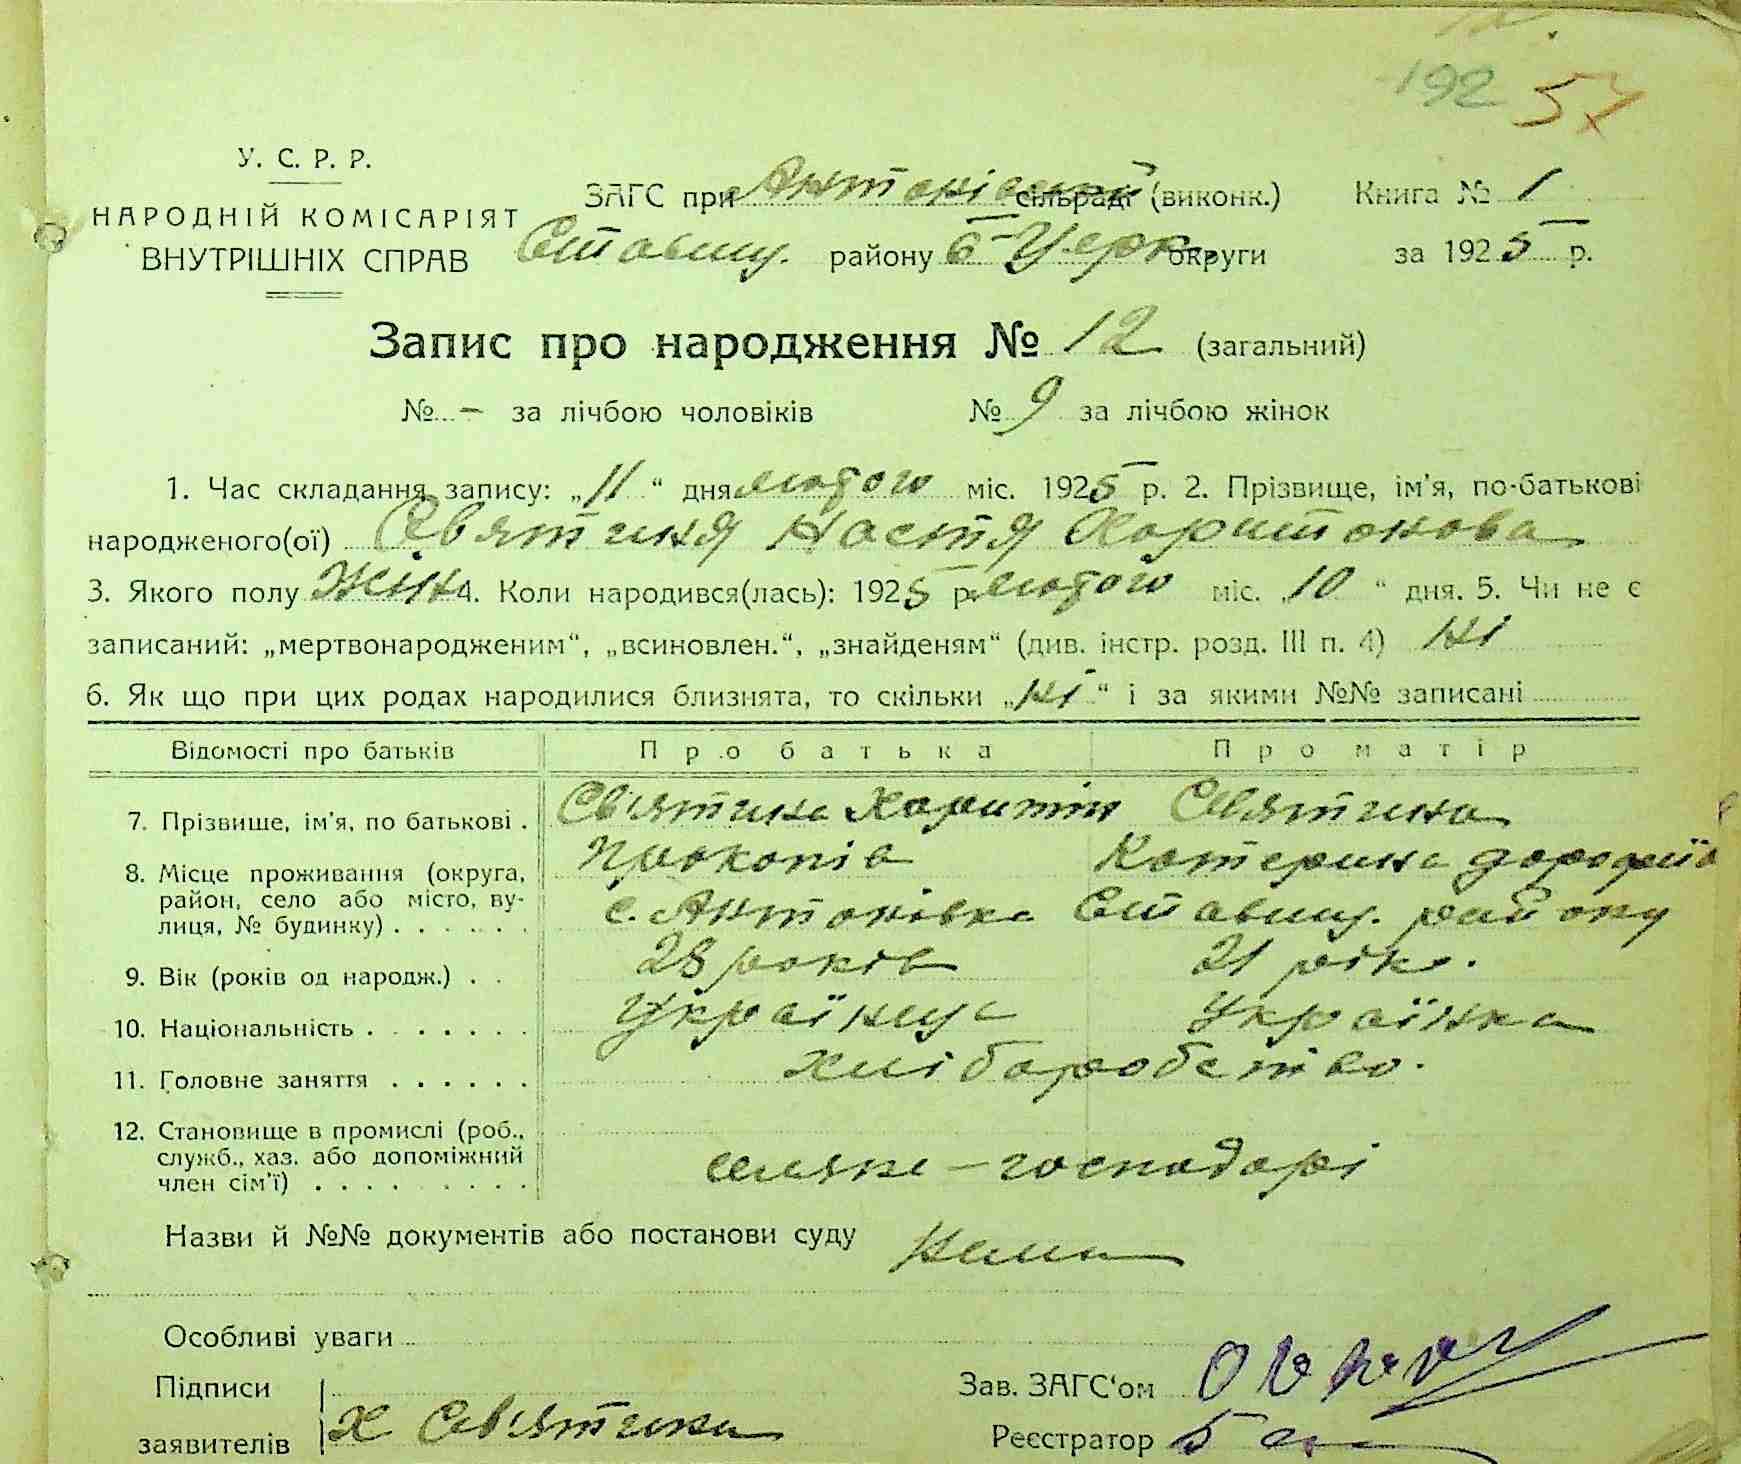 192 57
У. С. Р. Р.
НАРОДНІЙ КОМІСАРІЯТ
ВНУТРІШНІХ СПРАВ
ЗАГС при Антонівській сільраді (виконк.) Книга № 1
Ставищ. району Б-Церк округи за 1925 р.
Запис про народження № 12 (загальний)
№ - за лічбою чоловіків № 9 за лічбою жінок
1. Час складання запису: „11“ дня лютого міс. 1925 р. 2. Прізвище, ім'я, по-батькові
народженого(ої) Святина Настя Харитонова
3. Якого полу Жін 4. Коли народився(лась): 1925 р. лютого міс. „10“ дня. 5. Чи не є
записаний: „мертвонародженим“, „всиновлен.“, „знайденям“ (див. інстр. розд. III п. 4) Ні
6. Як що при цих родах народилися близнята, то скільки „Ні“ і за якими №№ записані
Відомості про батьків Про батька Про матір
7. Прізвише, ім'я, по батькові . Св'ятина Харитін Святина
Прокопів Катерина Дорофіїв
8. Місце проживання (округа,
район, село або місто, ву-
лиця, № будинку) . . . . . . с. Антонівка Ставищ. району
9. Вік (років од народж.) . . 28 років 21 рік.
10. Національність . . . . . . . Українца Українка
11. Головне заняття . . . . . . хліборобство.
12. Становище в промислі (роб.,
служб., хаз. або допоміжний
член сім'ї) . . . . . . . . . селяне - господарі
Назви й №№ документів або постанови суду Нема
Особливі уваги
Підписи
заявителів Х Св'ятина
Зав. ЗАГС'ом
Реєстратор